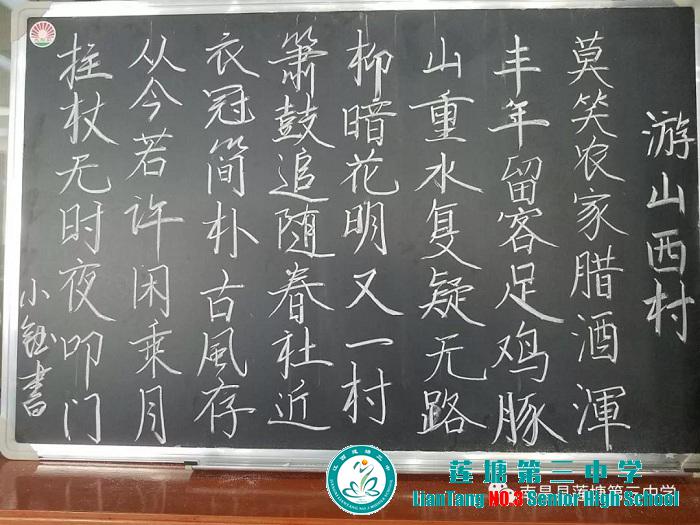 游山西村
莫笑农家腊酒渾
丰年留客足鸡豚
山重水复疑无路
柳暗花明又一村
箫鼓追随春社近
衣冠简朴古風存
从今若许闲乘月
拄杖无时夜叩门
小钰書
莲塘第三中学
LianTang NO.3 Senior High School
南昌县莲塘第三中学